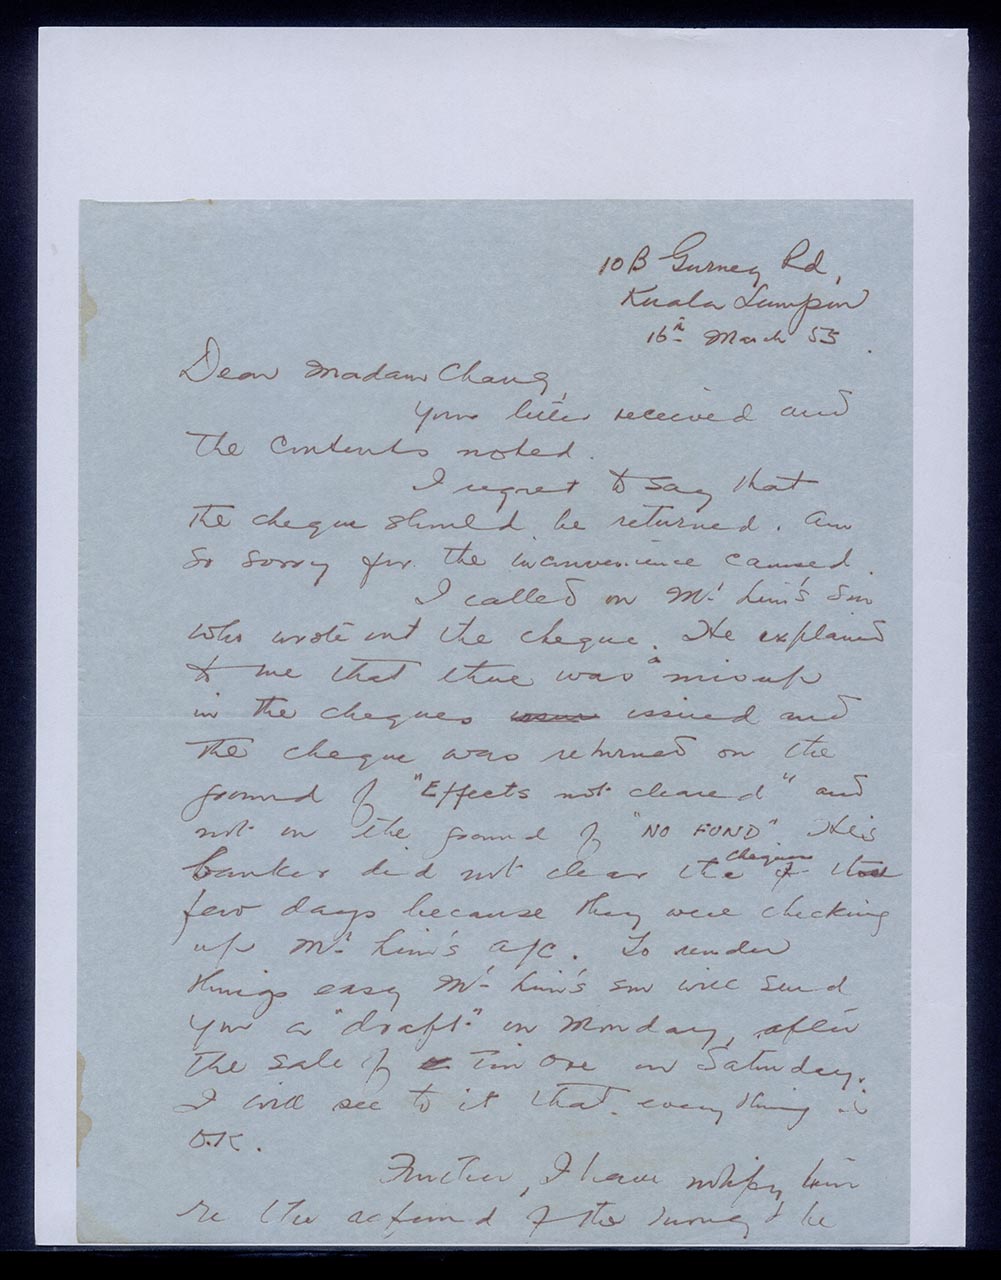 10B Gurney Rd,
Kuala Lumpur
16th March 55.
Dear Madam Chang,
Your letter received and
the contents noted.
I regret to say that
the cheque should be returned. Am
so sorry for the inconvenience caused.
I called on Mr Lim's son
who wrote out the cheque. He explained
to me that there was a mixup
in the cheques issued and
the cheque was returned on the
ground of "Effects not cleared" and
not on the ground of "NO FUND" His
banker did not clear the cheque
few days because they were checking
up Mr Lim's a/c. To render
things easy Mr Lim's son will send
you a "draft" on Monday, after
the sale of Tin Ore on Saturday.
I will see to it that everything is
O.K.
Further, I have notify him
re the refund of the money & he